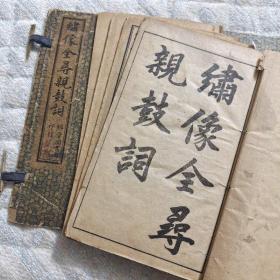 繡像全尋親鼓詞
繡像全尋
親鼓詞